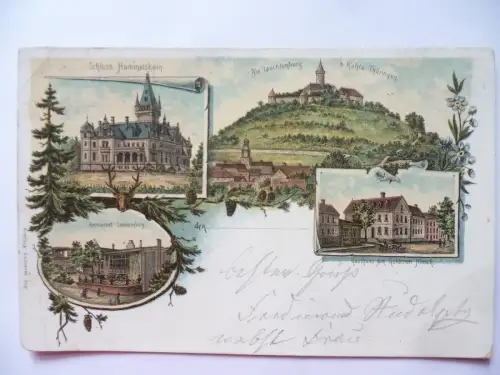 Schloss Hummelshain
Die Leuchtenburg b. Kahla-Thüringen
Restaurant Leuchtenburg
Gasthaus zum Goldenen Hirsch
den
besten Gruß
Ferdinand
nebst Frau